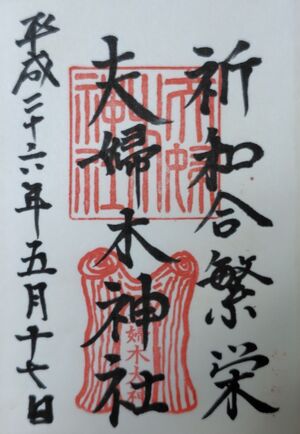 祈和合繁栄
夫婦木神社
平成二十六年五月十七日
夫婦木神社